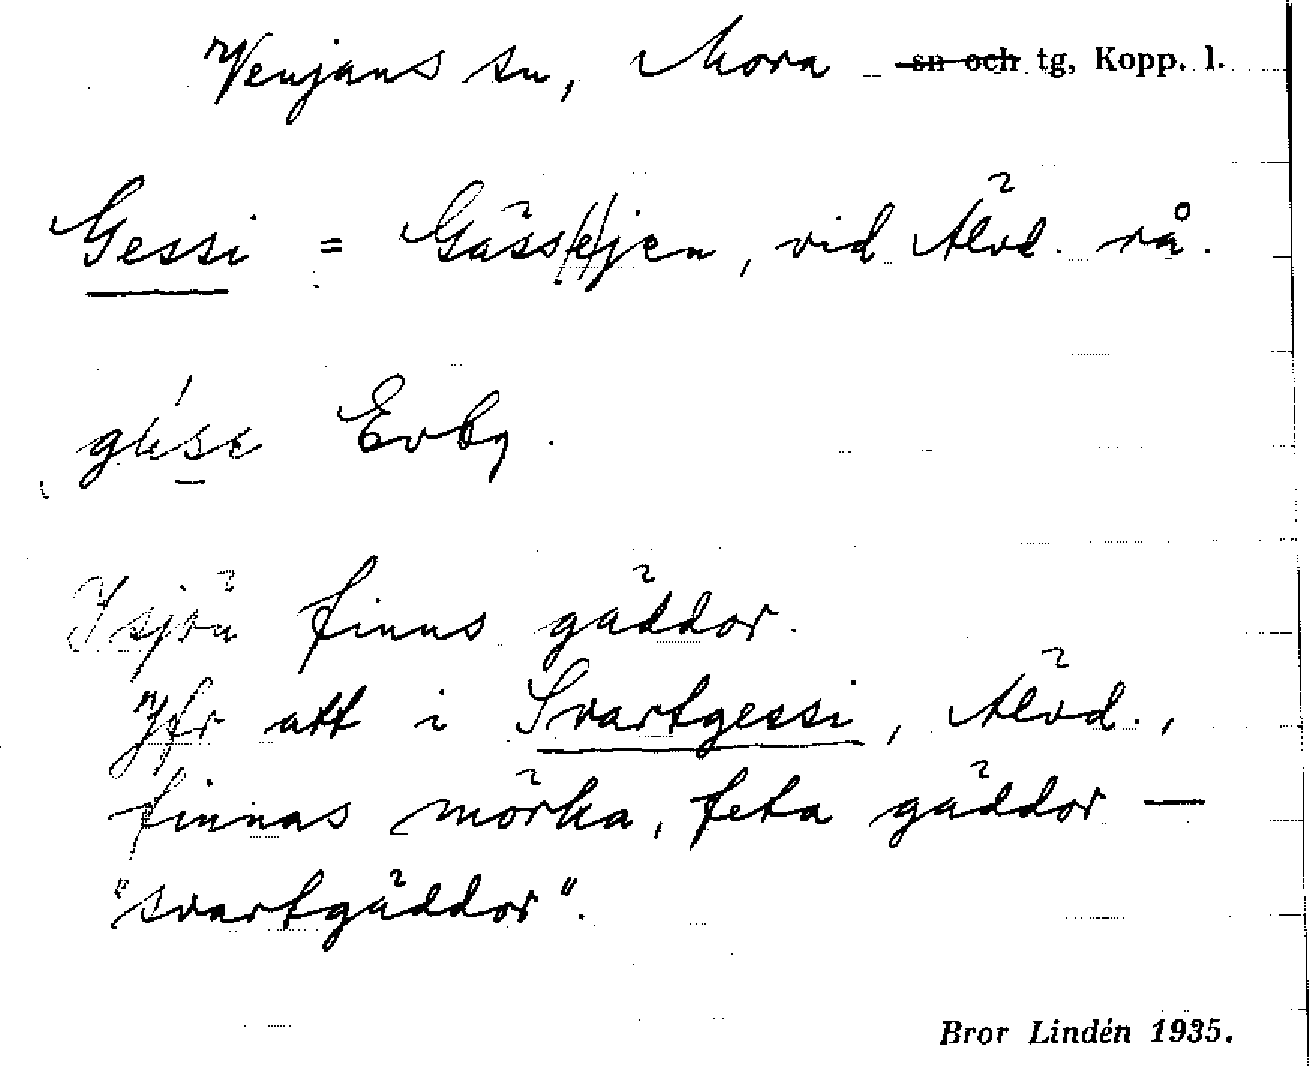 Venjans sn, Mora sn och tg, Kopp. l.
Gessi = Gäss(e)jen, vid Älvd. rå.
Evby.
I sjön finns gäddor.
Jfr att i Svartgessi, Älvd.,
finnas mörka, feta gäddor —
"svartgäddor".
Bror Lindén 1935.